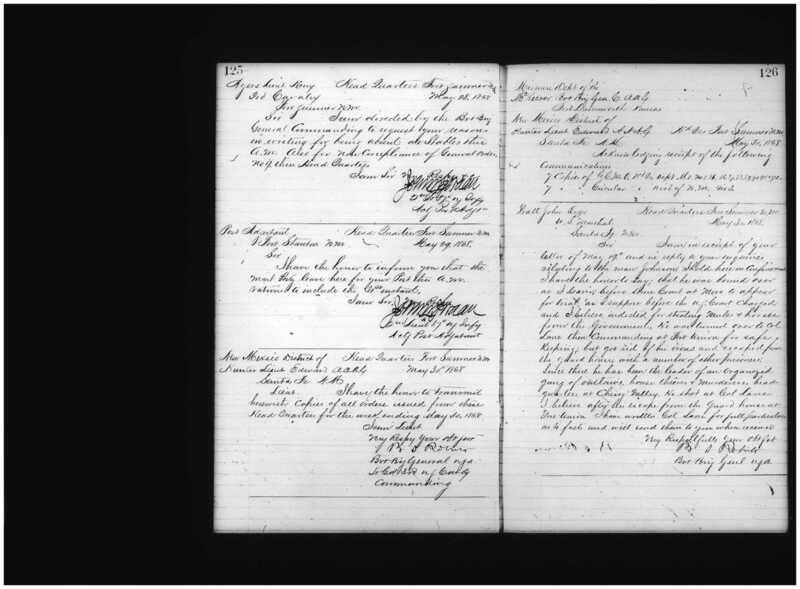 125
Head Quarters Fort Sumner N.M.
3rd Cavalry May 28, 1868
Fort Sumner N.M.
Sir I am directed by the Bvt Brig
General Commanding to request your reasons
in writing for being absent
A.M. Also for non Compliance of General Order
No 9 Head Quarters
I am Sir
Post Adjutant Head Quarters Fort Sumner N.M.
Fort Stanton N.M. May 29, 1868.
Sir
I have the honor to inform you that the
leave here for your Post this A.M.
rations to include the instant.
I am Sir
2nd Lieut 37th Infty
Actg Post Adjutant
New Mexico District of Head Quarters Fort Sumner N.M.
Hunter Lieut Edward A.A.A.G May 30th 1868
Santa Fe N.M.
Lieut. I have the honor to transmit
herewith Copies of all orders issued from these
Head Quarters for the week ending May 30, 1868
I am Lieut
Very Respy Your Obt Svt
Bvt Brig General U.S.A.
Commanding
126
Missouri Dept of the
Bvt Brig Gen C. A.A.G
Fort Leavenworth Kansas
New Mexico District of
Hunter Lieut Edward A.A.A.G Hd Qrs Fort Sumner N.M.
Santa Fe N.M. May 30, 1868
Acknowledging receipt of the following
Communications
7 Copies of G.C.M.O.
7 " " Circular " Dist of N.M. No 2
Pratt John Esqr Head Quarters Fort Sumner N.M.
U.S. Marshal May 30, 1868.
Santa Fe N.M.
Sir I am in receipt of your
letter of May 19th and in reply to your enquiries
relating to the man Johnson I hold here in Confinement
I have the honor to say, that he was bound over
as I learn before the Court at Mora to appear
for trial, as I suppose before the U.S. Court Charged
and I believe indicted for stealing Mules & horses
from the Government. He was turned over to Col
Lane then Commanding at Fort Union for safe
Keeping, but got rid of his irons and escaped from
the guard house with a number of other prisoners.
Since then he has been the leader of an Organized
gang of outlaws, horse thieves & Murderers, head
quarters at Cherry Valley. He shot at Col Lane
I believe after the escape from the Guard house at
Fort Union. I have written Col Lane for full particulars
as to facts and will send them to you when received
Very Respectfully Your Obt Svt
Bvt Brig Genl U.S.A.